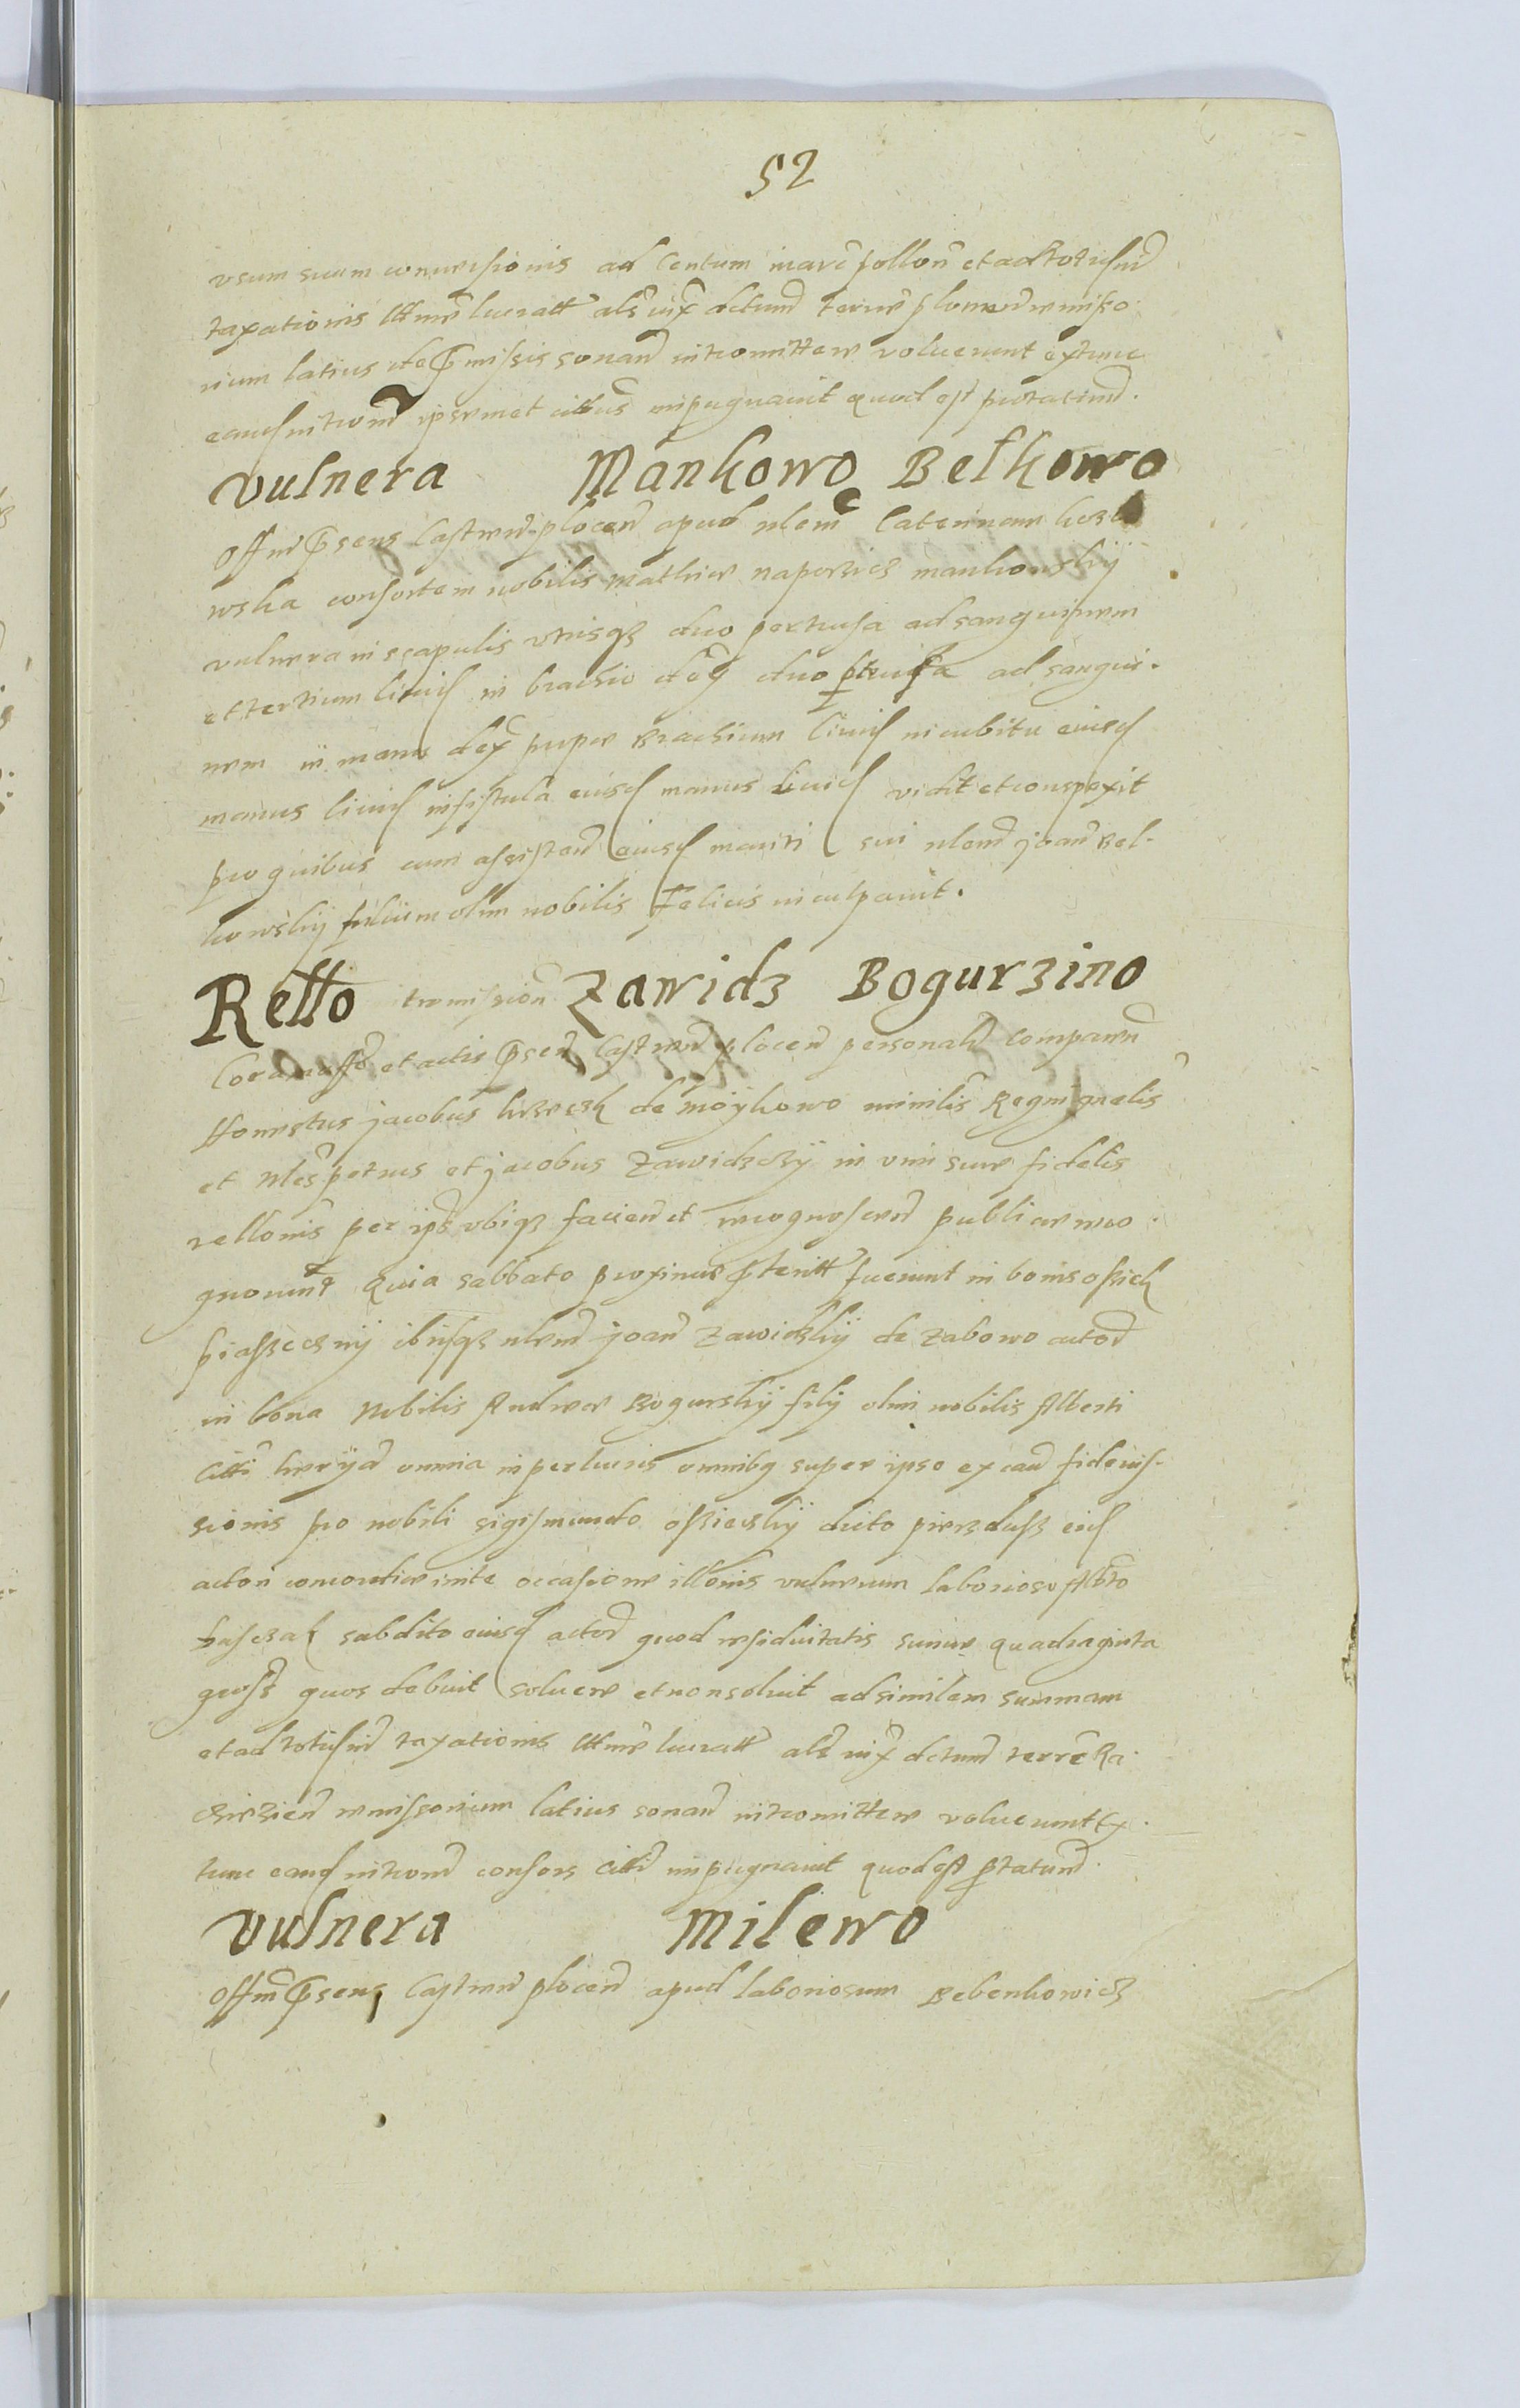 52
usum suum conversionis ad Centum marc pollon et ad totusmd
taxationis ultime lucratt als iux dctumd terre plomend remisso
rium latius de premissis sonand intromittere voluerunt extunc
eand intromd ipsemet cittus impugnavit quod est putatumd.
Vulnera Mankowo Belkowo
Offm presens Castrens plocen apud nlem Caterinam
wska consortem nobilis Mathie naporzics mankowskij
vulnera in scapulis utrisqz duo pertusa ad sanguinem
et tertium livid in brachio duo ptusa ad sangui.
nem in manu dex supre Brachium livid in cubitu eiusd
manus livid in fistula eiusd manus livid vidit et conspexit
pro quibus cum assisten eiusd mariti sui nlemd joan Bel-
kowskij filium olim nobilis Felicis inculpavit.
Retto itromission Zawidz Bogurzino
Coram offo et actis presen Castren plocen personalr comparen
Honestus jacobus de moijkowo minilis Regni gnalis
et Nles petrus et jacobus Zawidzczij in vim sue fidelis
rellonis per ips ubiqz facien et recognoscen publice reco
gnovnt Quia sabbato proxime pteritt fuerunt in bonis ossiek
piassecznij ibiqz nlemd joan Zawidzkij de zabowo actod
in bona Nobilis Andree Bogurskij filij olim nobilis Alberti
Citti omnia in perlucris omnibq super ipso ex cau fideius-
sionis pro nobili sigismundo ossieczkij dicto eid
actori concorditer inite occasione illonis vulnerum laborioso Albto
subdito eiusd actod quod residuitatis summe quadraginta
gross quos debuit solvere et non solvit ad similem summam
et ad totusmd taxationis ultime lucratt als iux dctumd terre Ra
cziezien remissorium latius sonan intromittere voluerunt Ex
tunc eand intromd consors citti impugnavit quod est ptatumd.
Vulnera Milewo
Offm presens Castren plocen apud laboriosum Bebenkowicz